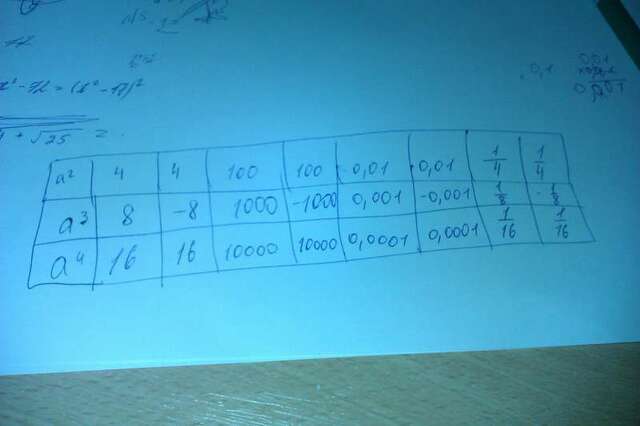 √25 =
0,1
0,01
a² 4 4 100 100 0,01 0,01 1/4 1/4
a³ 8 -8 1000 -1000 0,001 -0,001 1/8 -1/8
a⁴ 16 16 10000 10000 0,0001 0,0001 1/16 1/16